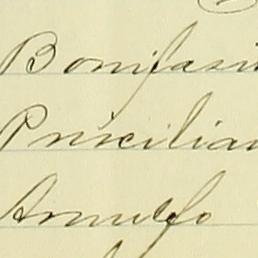 Bonifasi
Priscilian
Arnulfo